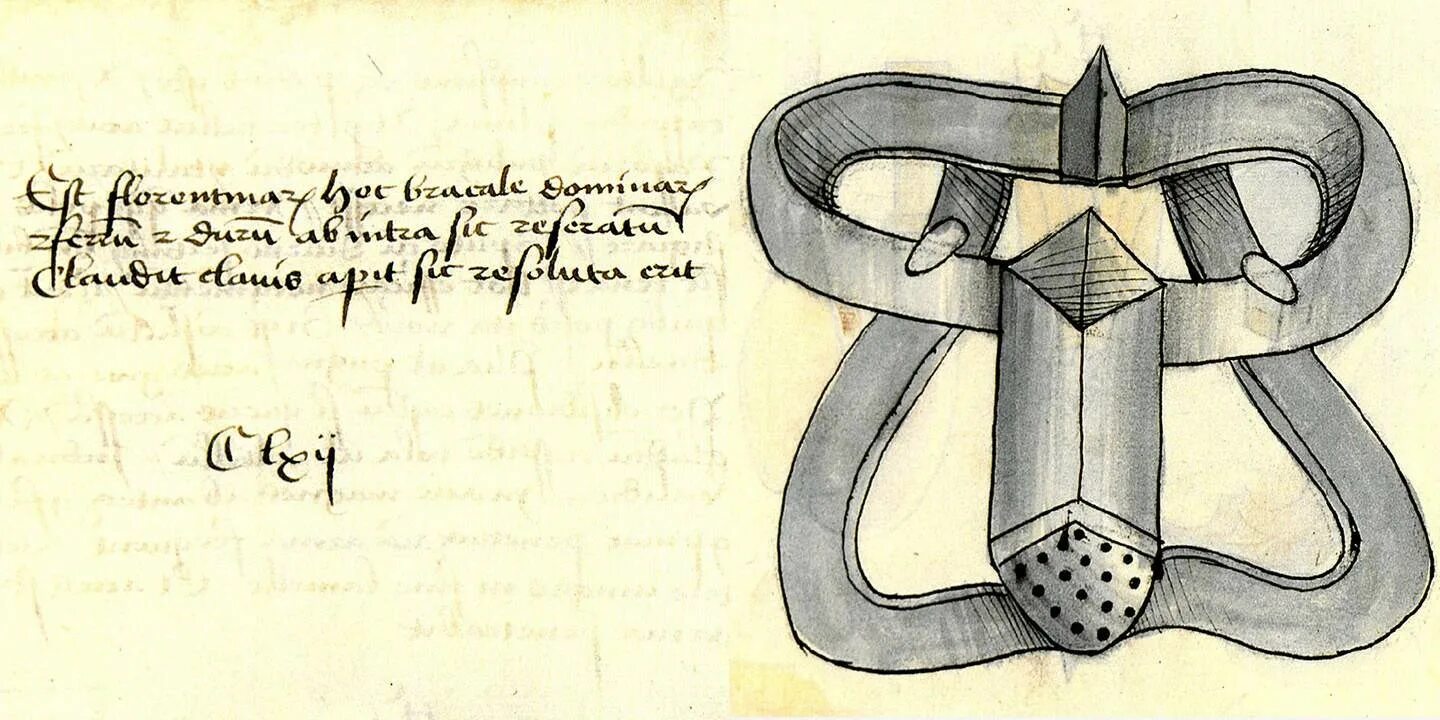 Est florentinaꝝ hoc bracale dominaꝝ
ꝛferrū ꝛ durū ab intra sic reseratū
Claudit clauis apit sic resoluta erit
Clxij